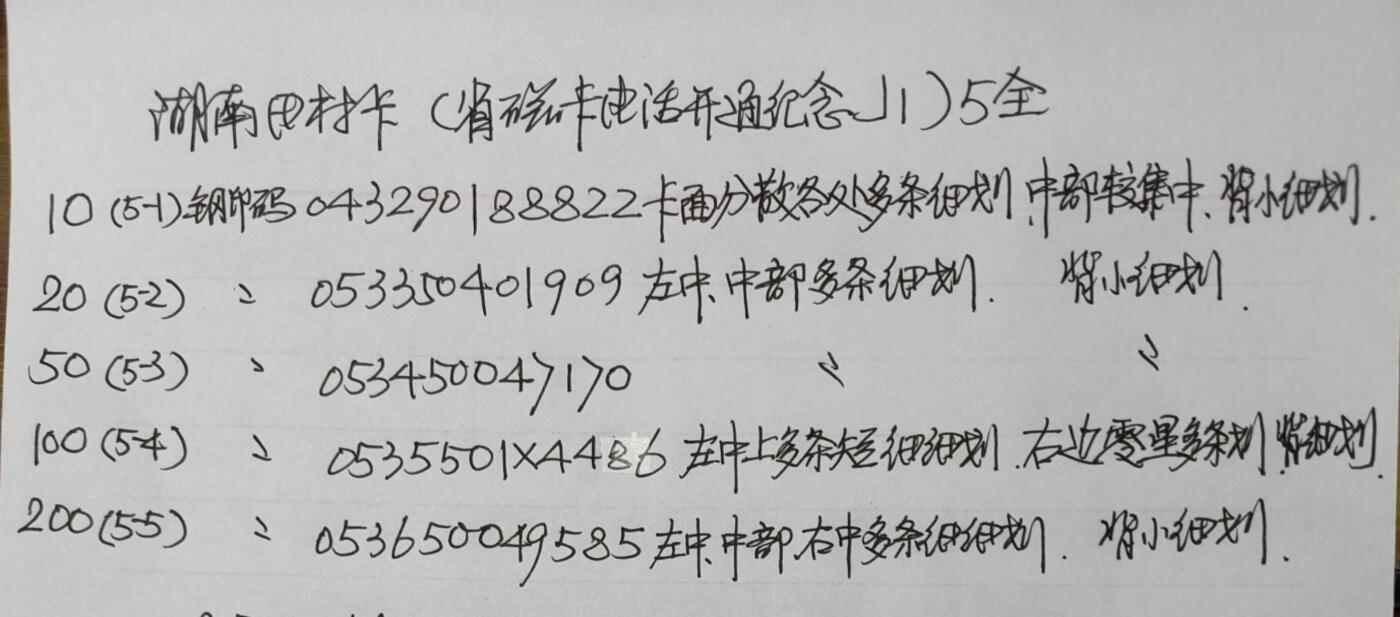 湖南田村卡(省磁卡电话开通纪念J1)5全
10(5-1)钢印码043290188822卡面分散各处多条细划、中部较集中、背小细划.
20(5-2) 〃 053350401909左中、中部多条细划. 背小细划.
50(5-3) 〃 053450047170 〃 〃
100(5-4) 〃 0535501X4486左中上多条短细细划.右边零星多条划.背细划.
200(5-5) 〃 053650049585左中、中部、右中多条细细划. 背小细划.